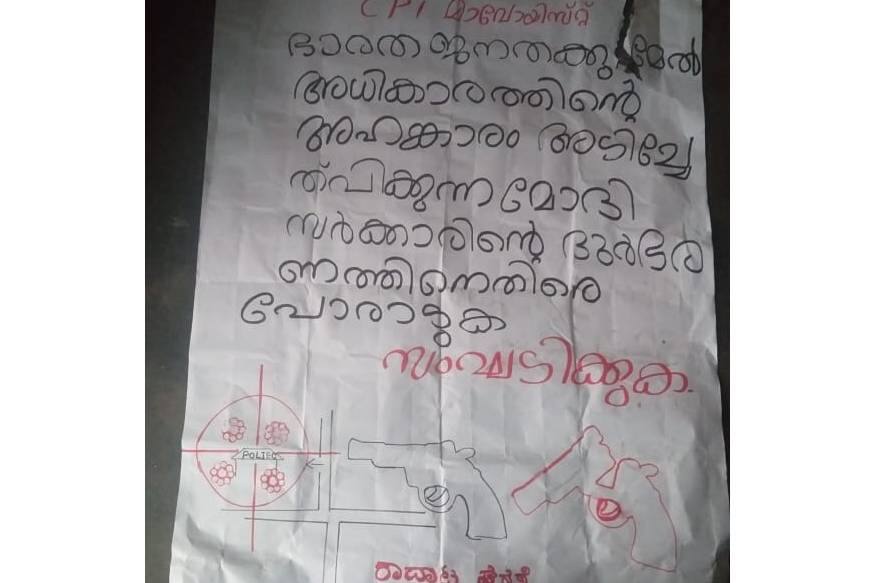 CPI മാവോയിസ്റ്റ്
ഭാരത ജനതക്കു മേൽ
അധികാരത്തിന്റെ
അഹങ്കാരം അടിച്ചേ
ൽപിക്കുന്ന മോദി
സർക്കാരിന്റെ ദുർഭര
ണത്തിനെതിരെ
പോരാടുക
സംഘടിക്കുക.
POLICE